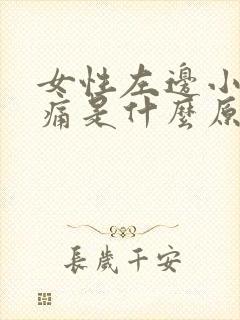 女性左邊小
痛是什麼原
長歲千安